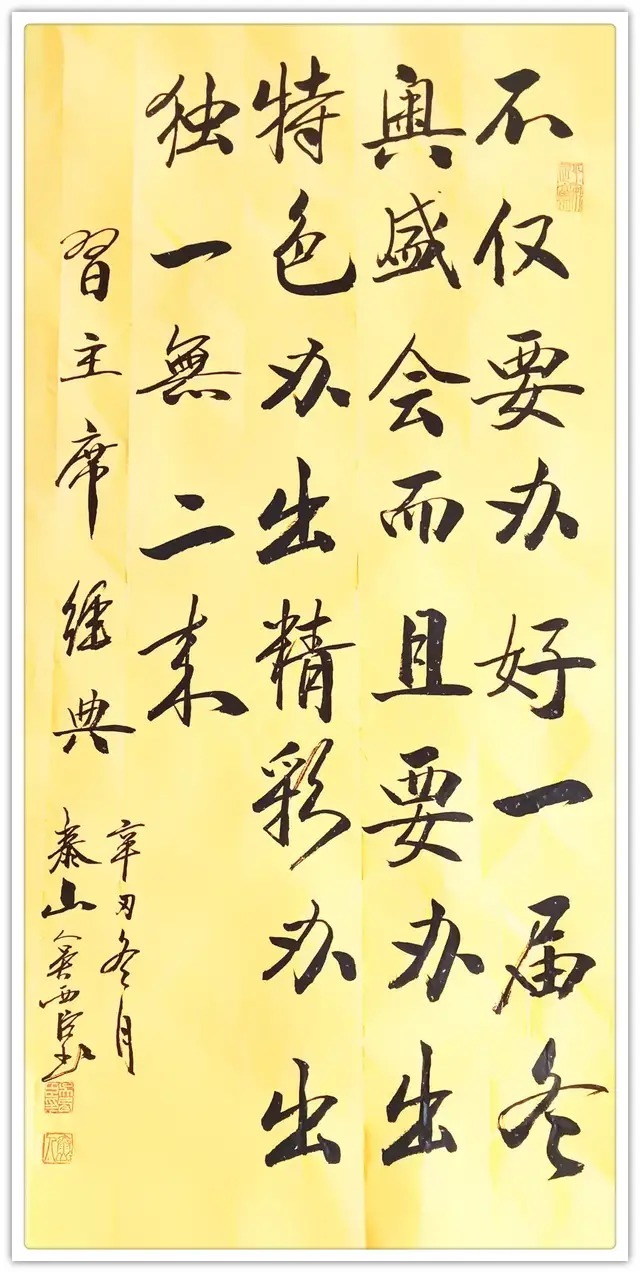 不仅要办好一届冬
奥盛会而且要办出
特色办出精彩办出
独一無二来
習主席經典
辛丑冬月
泰山